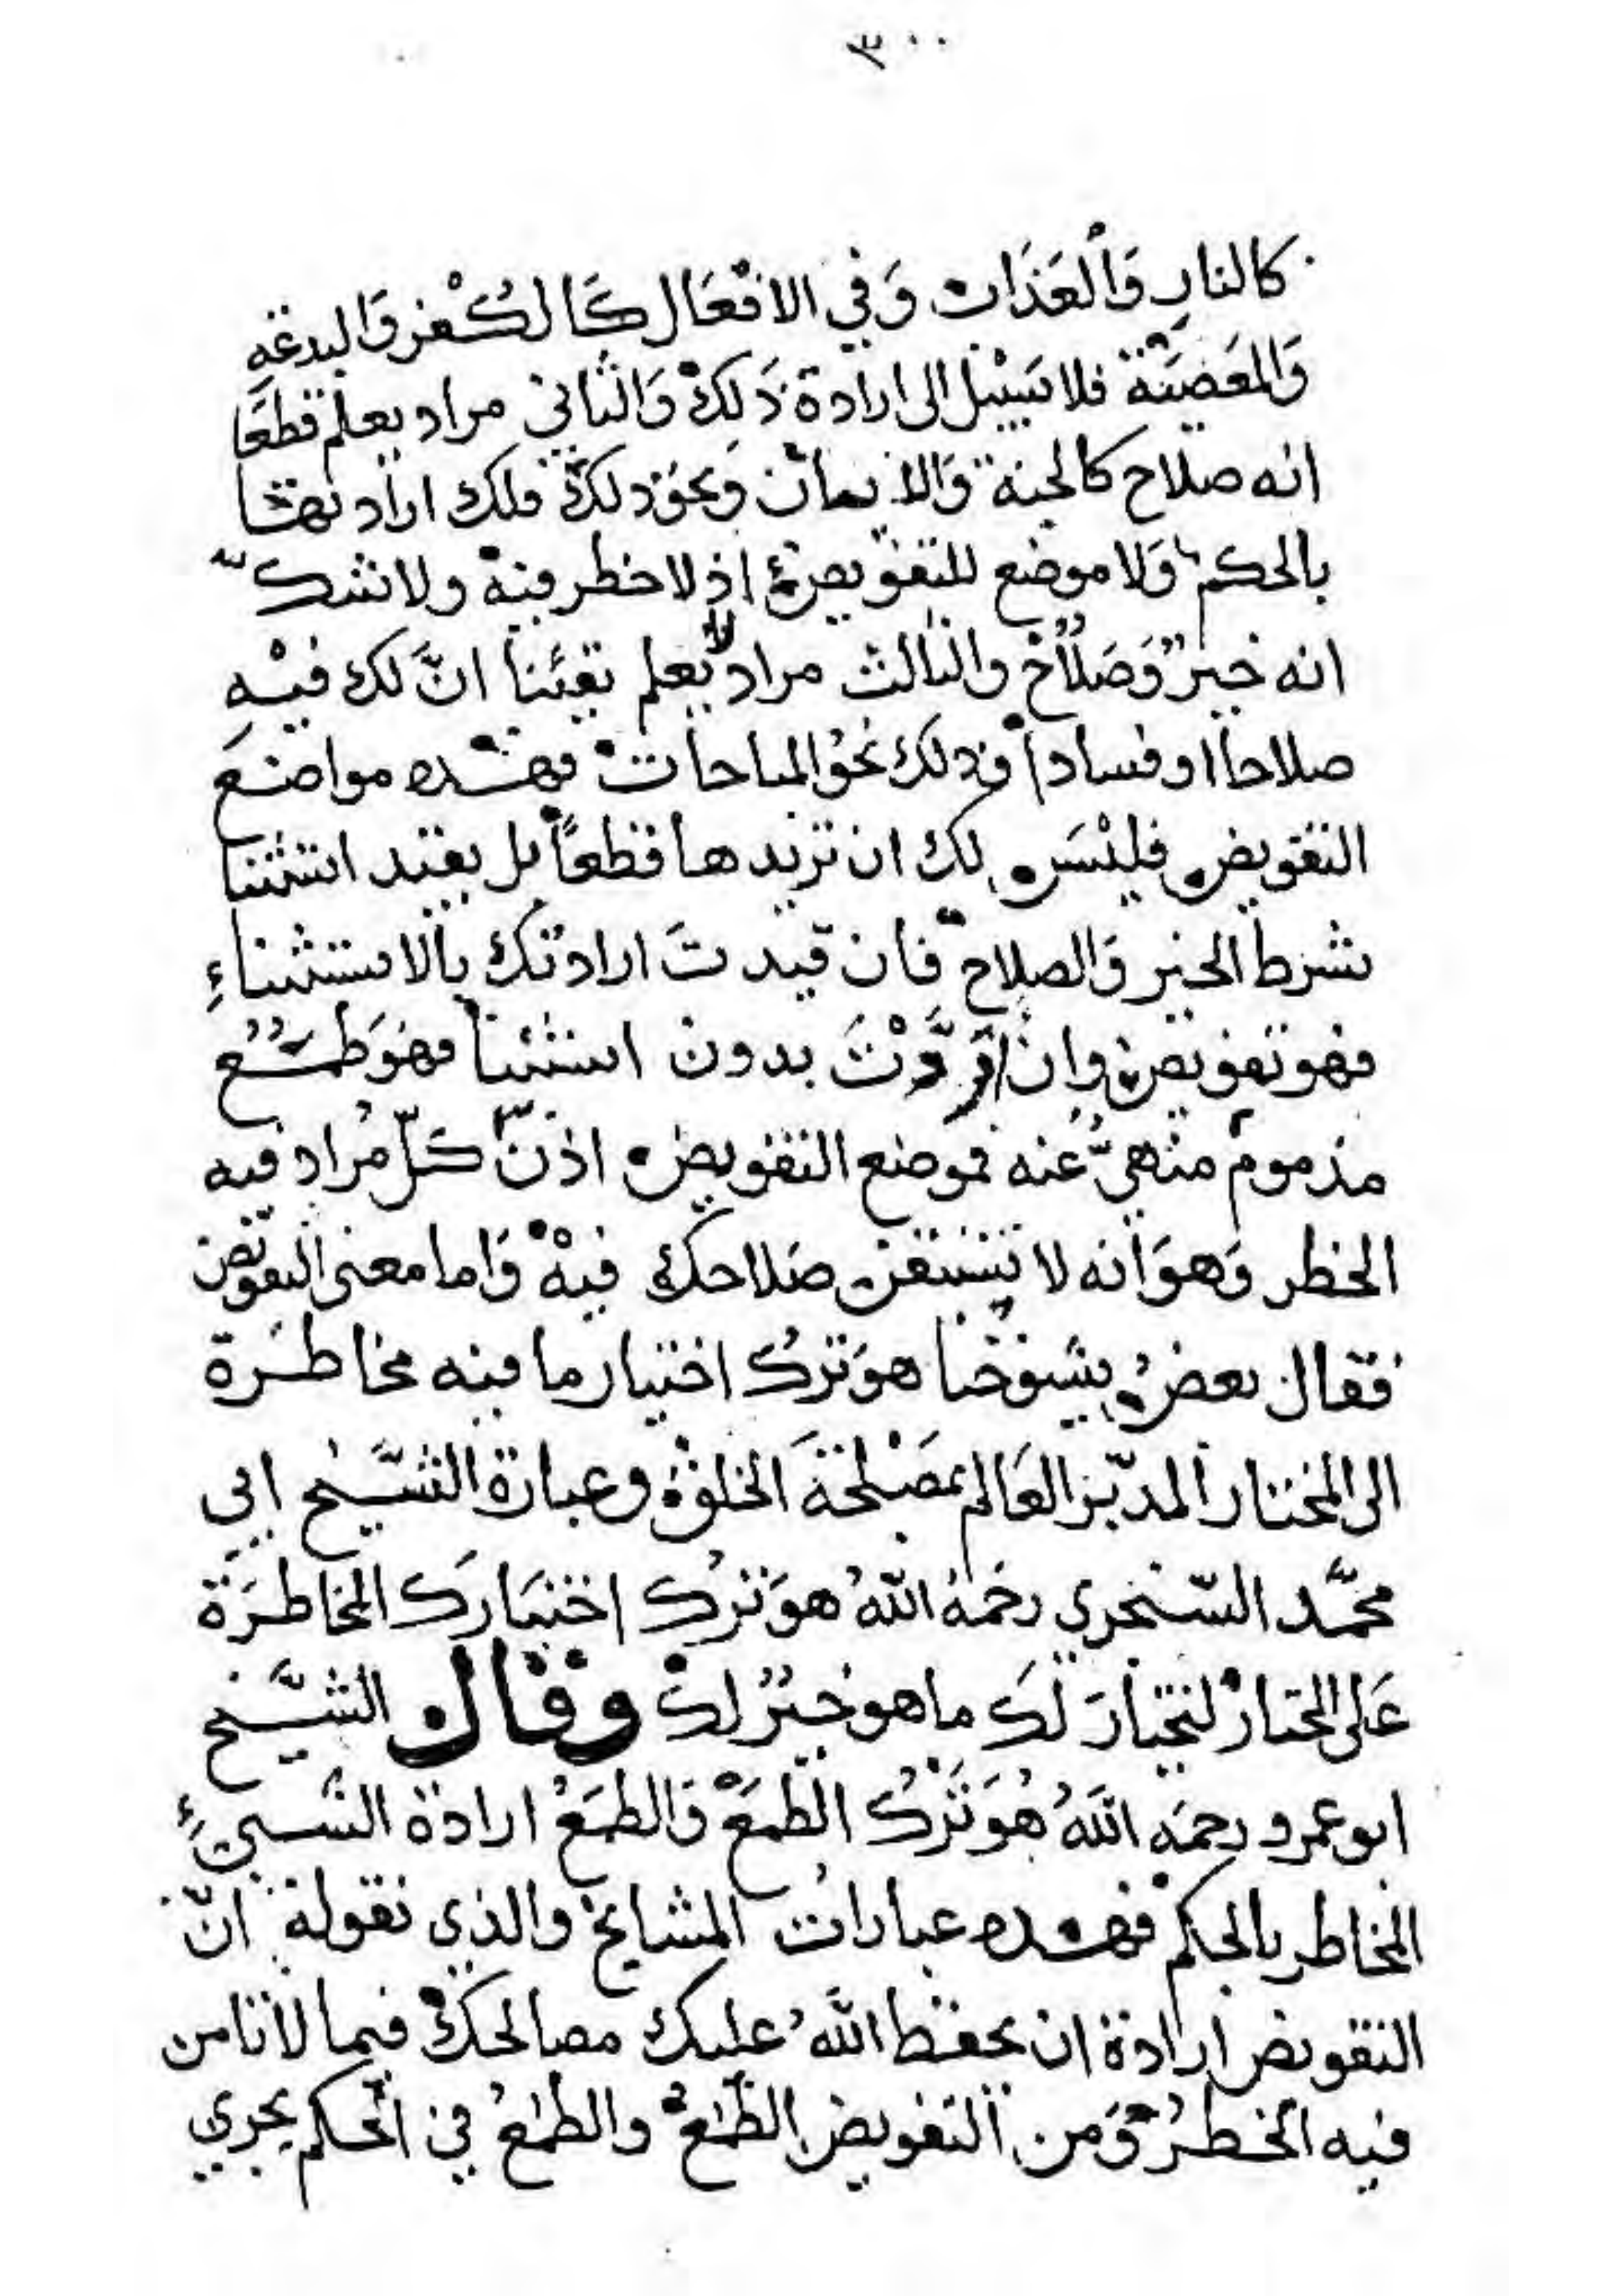 ٣٠٠
كالنارِ وَالْعَذَاب وَفي الافْعَال كَالكُفْر وَالبدعَةِ
وَالمَعَصْيَة فلا سَبيْل الى ارادة ذَلِكْ وَالثاني مراد يعلم قطعَا
انه صلاح كالجنة وَالايمان وَنحوْ ذلكْ فلك ارادتها
بالحكم وَلا موضع للتفويض اذ لا خطر فيهْ ولا شكّ
انه خير وَصَلاح والثالث مراد لا يعلم يقيْنا انَّ لك فيْهِ
صلاحا او فسادا وذلك نحوُ المباحات فهذه مواضع
التفويض فليْسَ لك ان تريدها قطعًا بل بقيد استثنا
بشرط الخير وَالصلاح فان قيدتَ ارادتك بالاستثناءِ
فهو تفويض وان اَرَدْتَ بدون استثنا فهوَ طَمَع
مذموم منهيٌّ عنه فموضع التفويض اذن كلّ مُراد فيه
الخطر وَهوَ انه لا تستيقن صَلاحك فيهْ وَاما معنى التفويض
فقال بعضُ شيوخنا هوَ تركُ اختيار ما فيه مخاطرة
الى المختار المدبّر العَالم بمَصْلحَة الخلق وعبارة الشَّيخ ابي
محمَّد السّنجري رحَمهُ اللّهُ هوَ تركُ اختيَارك المخاطرَة
عَلى المختار ليختارَ لَكَ ما هو خيرٌ لكْ وقال الشَّيخ
ابو عمرو رحمَه اللّهُ هُوَ تَرْكُ الطمَعْ وَالطمَعُ ارادة الشيئ
المخاطر بالحكم فهذه عبارات المشايخ والذي نقولهُ انّ
التفويض ارادة ان يحفظ اللّهُ عليك مصالحك فيما لا تامن
فيه الخطرُ وَمن التفويض الطمعْ والطمعُ في الحكم يجري